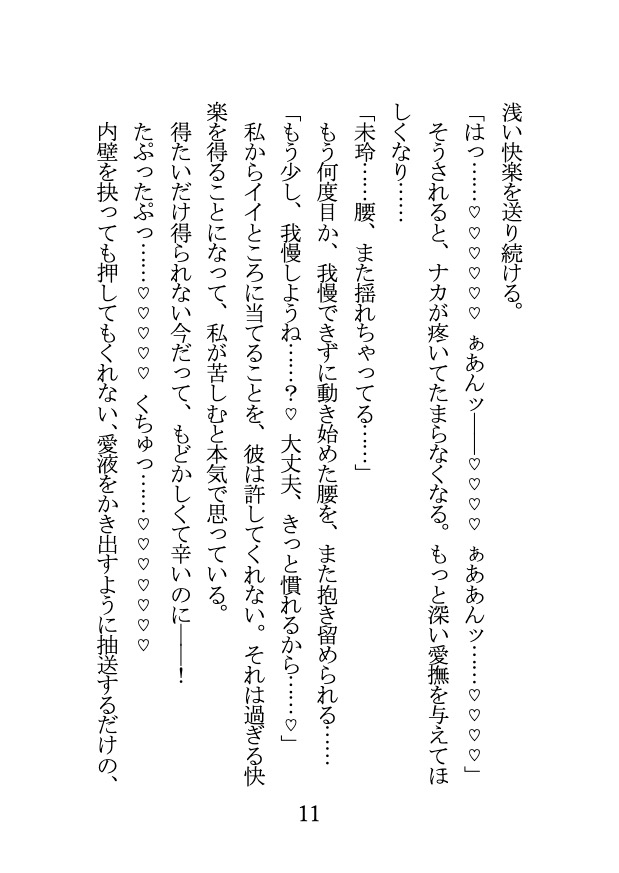 浅い快楽を送り続ける。
「はっ……♡♡♡♡♡♡ ぁあんッ――♡♡♡♡ ぁああんッ……♡♡♡♡」
そうされると、ナカが疼いてたまらなくなる。もっと深い愛撫を与えてほ
しくなり……
「未玲……腰、また揺れちゃってる……」
もう何度目か、我慢できずに動き始めた腰を、また抱き留められる……
「もう少し、我慢しようね……？♡ 大丈夫、きっと慣れるから……♡」
私からイイところに当てることを、彼は許してくれない。それは過ぎる快
楽を得ることになって、私が苦しむと本気で思っている。
得たいだけ得られない今だって、もどかしくて辛いのに――！
たぷったぷっ……♡♡♡♡♡ くちゅっ……♡♡♡♡♡♡♡
内壁を抉っても押してもくれない、愛液をかき出すように抽送するだけの、
11